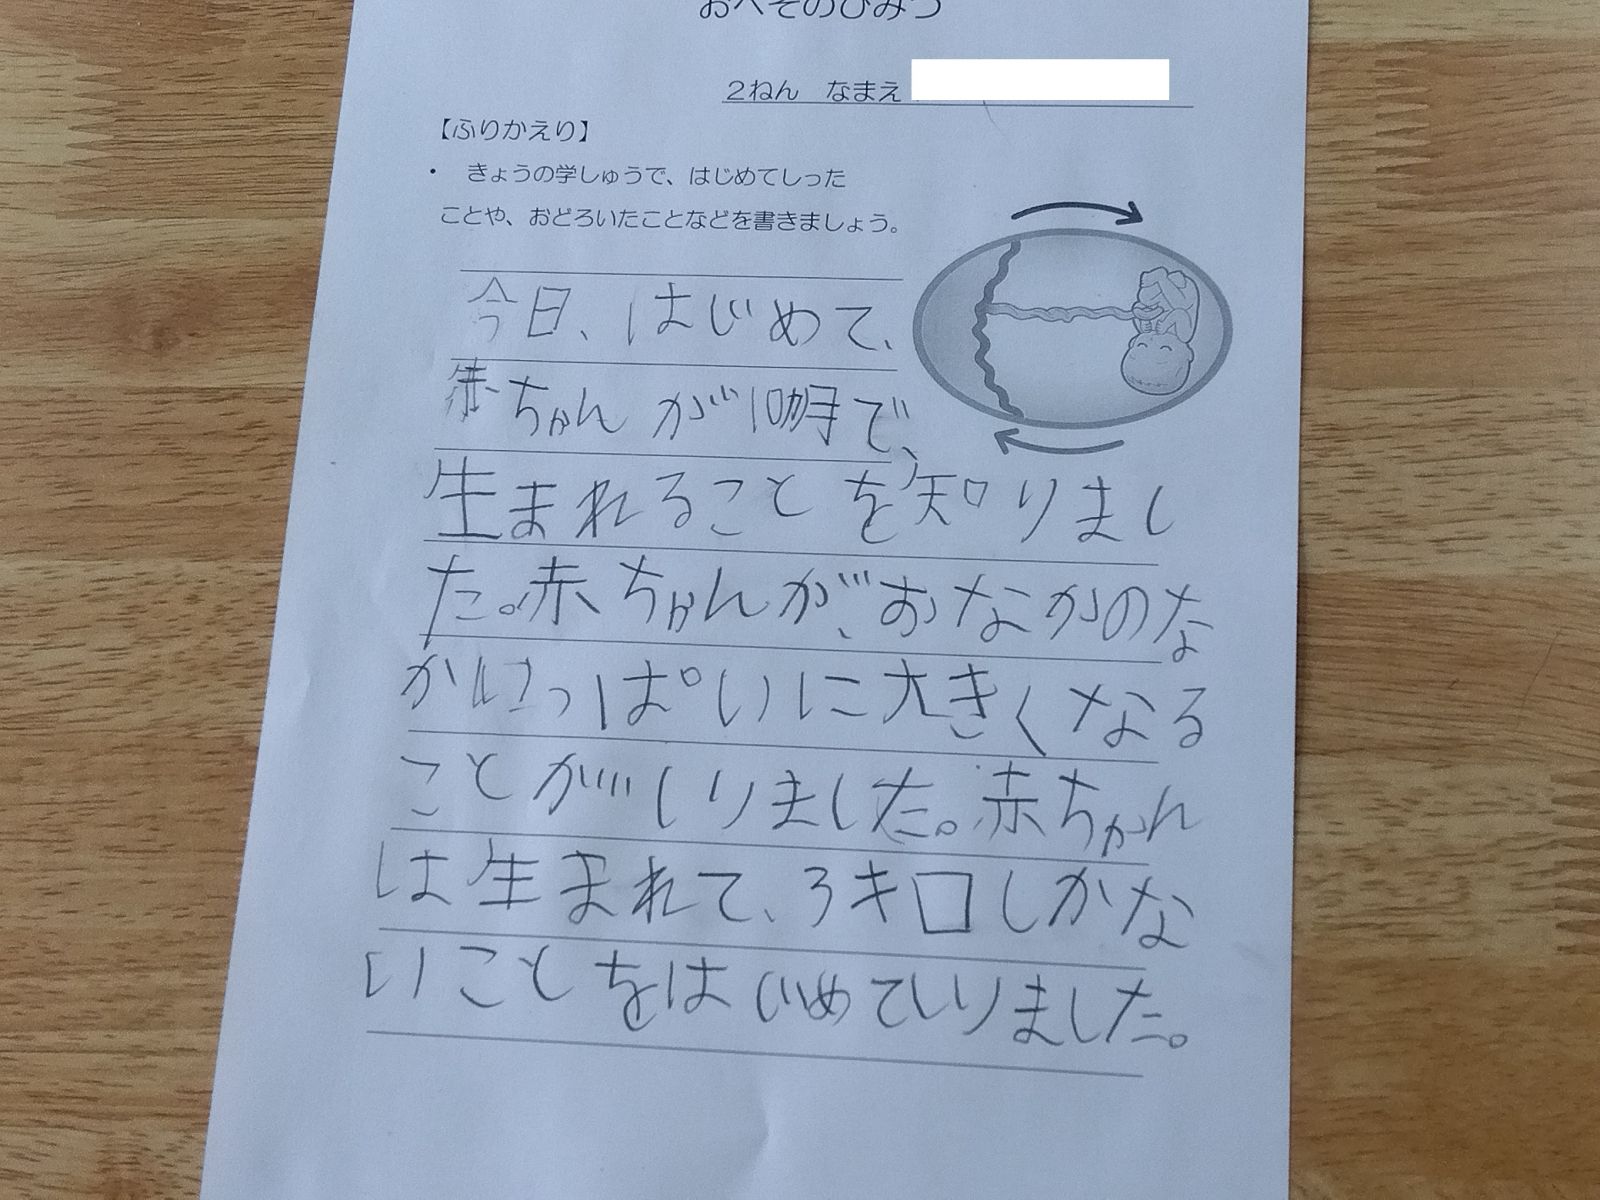 おへそのひみつ
2ねん なまえ
【ふりかえり】
・ きょうの学しゅうで、はじめてしった
ことや、おどろいたことなどを書きましょう。
今日、はじめて、
赤ちゃんが10か月で、
生まれることを知りまし
た。赤ちゃんが、おなかのな
かいっぱいに大きくなる
ことがしりました。赤ちゃん
は生まれて、3キロしかな
いことをはじめてしりました。